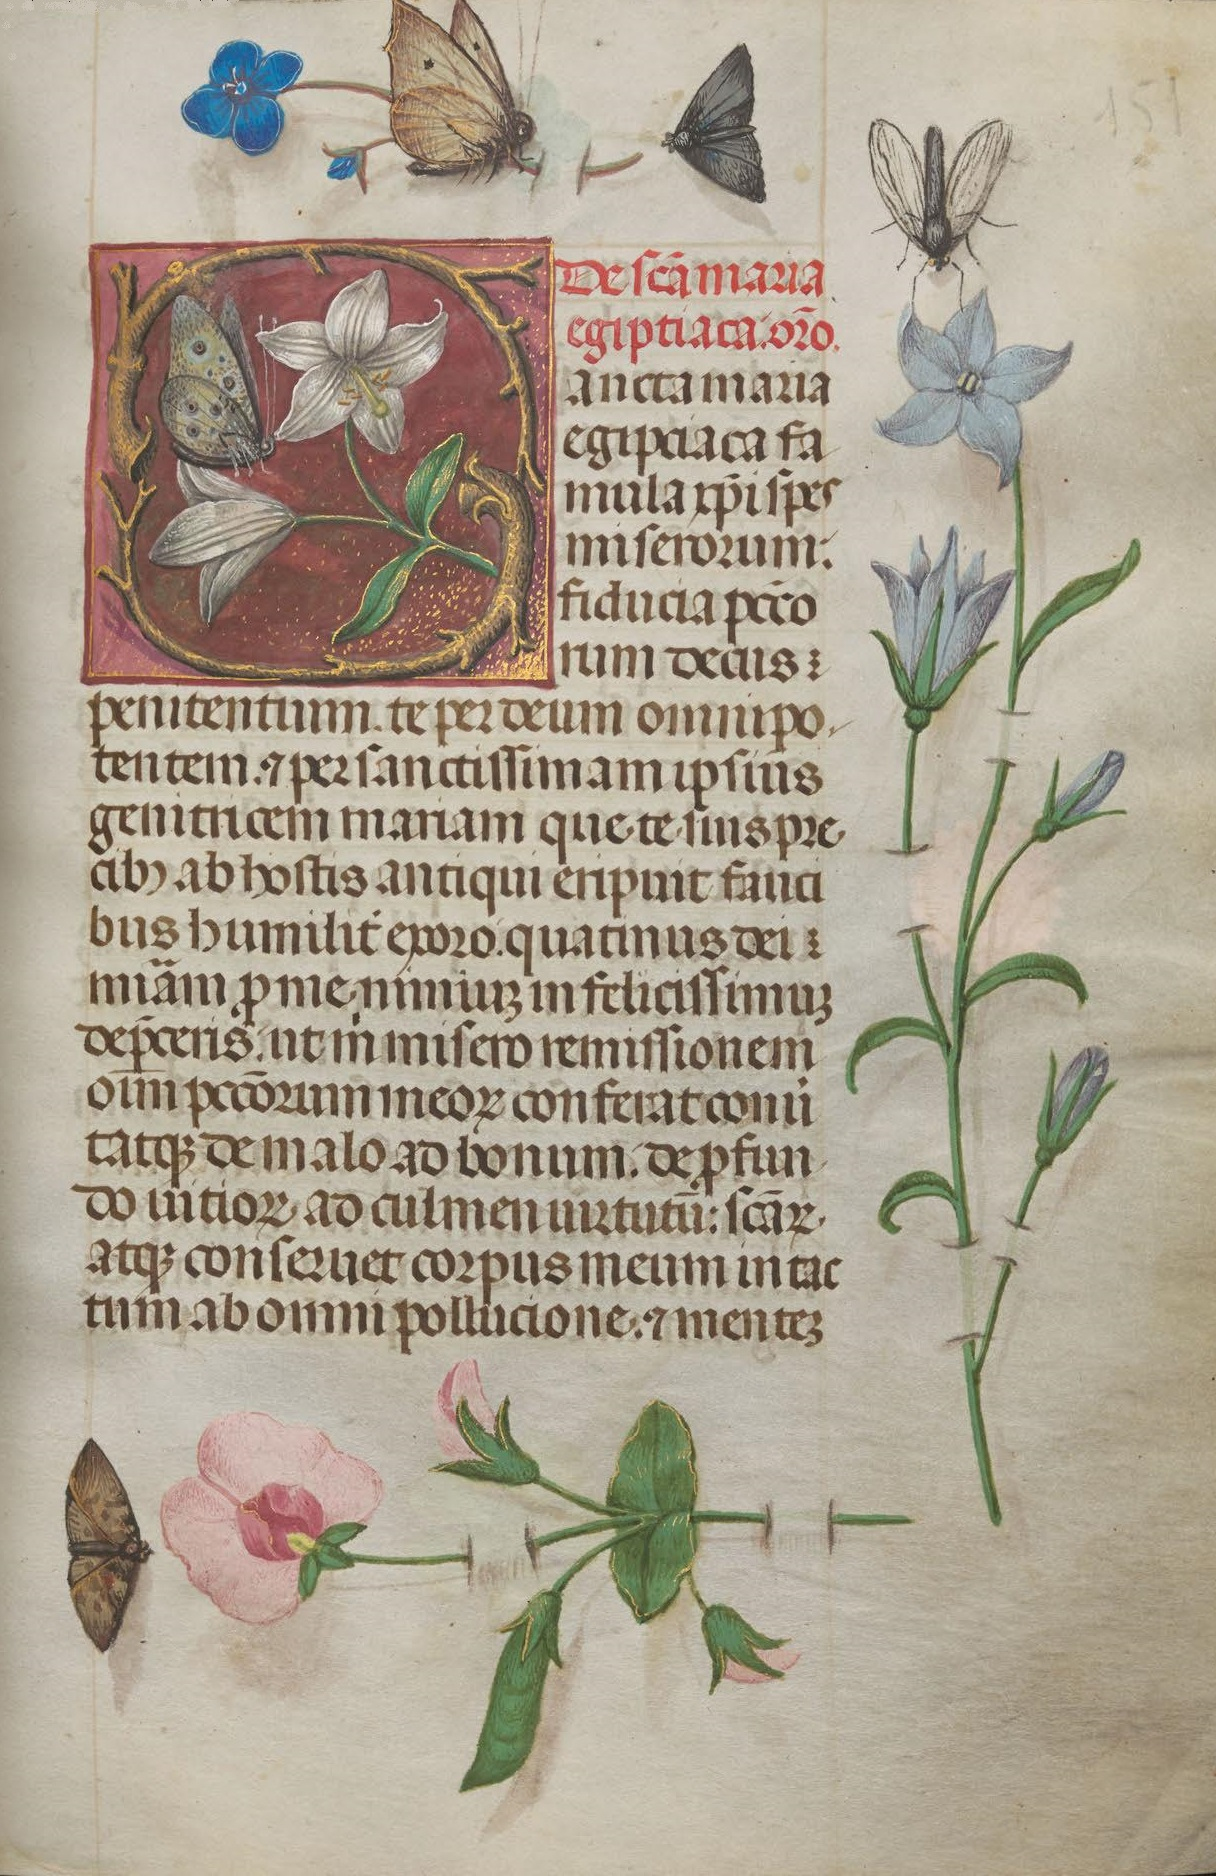 151
De scā maria
egiptiaca. oro.
ancta maria
egipciaca fa
mula xp̄i spes
miserorum:
fiducia pctō
rum decus:
penitentium. te per deum omnipo
tentem. ⁊ per sanctissimam ipsius
genitricem mariam que te suis pre
cibꝫ ab hostis antiqui eripuit fauci
bus humilit̄ exoro. quatinus dei:
miām ꝓ me nimiuꝫ infelicissimuꝫ
dep̄ceris. ut m̄ misero remissionem
oīm pctōrum meoꝝ conferat conū
tatqꝫ de malo ad bonum. de ꝓfun
do uitioꝝ ad culmen uirtutū: scāꝝ
atqꝫ conseruet corpus meum intac
tum ab omni pollucione. ⁊ menteꝫ